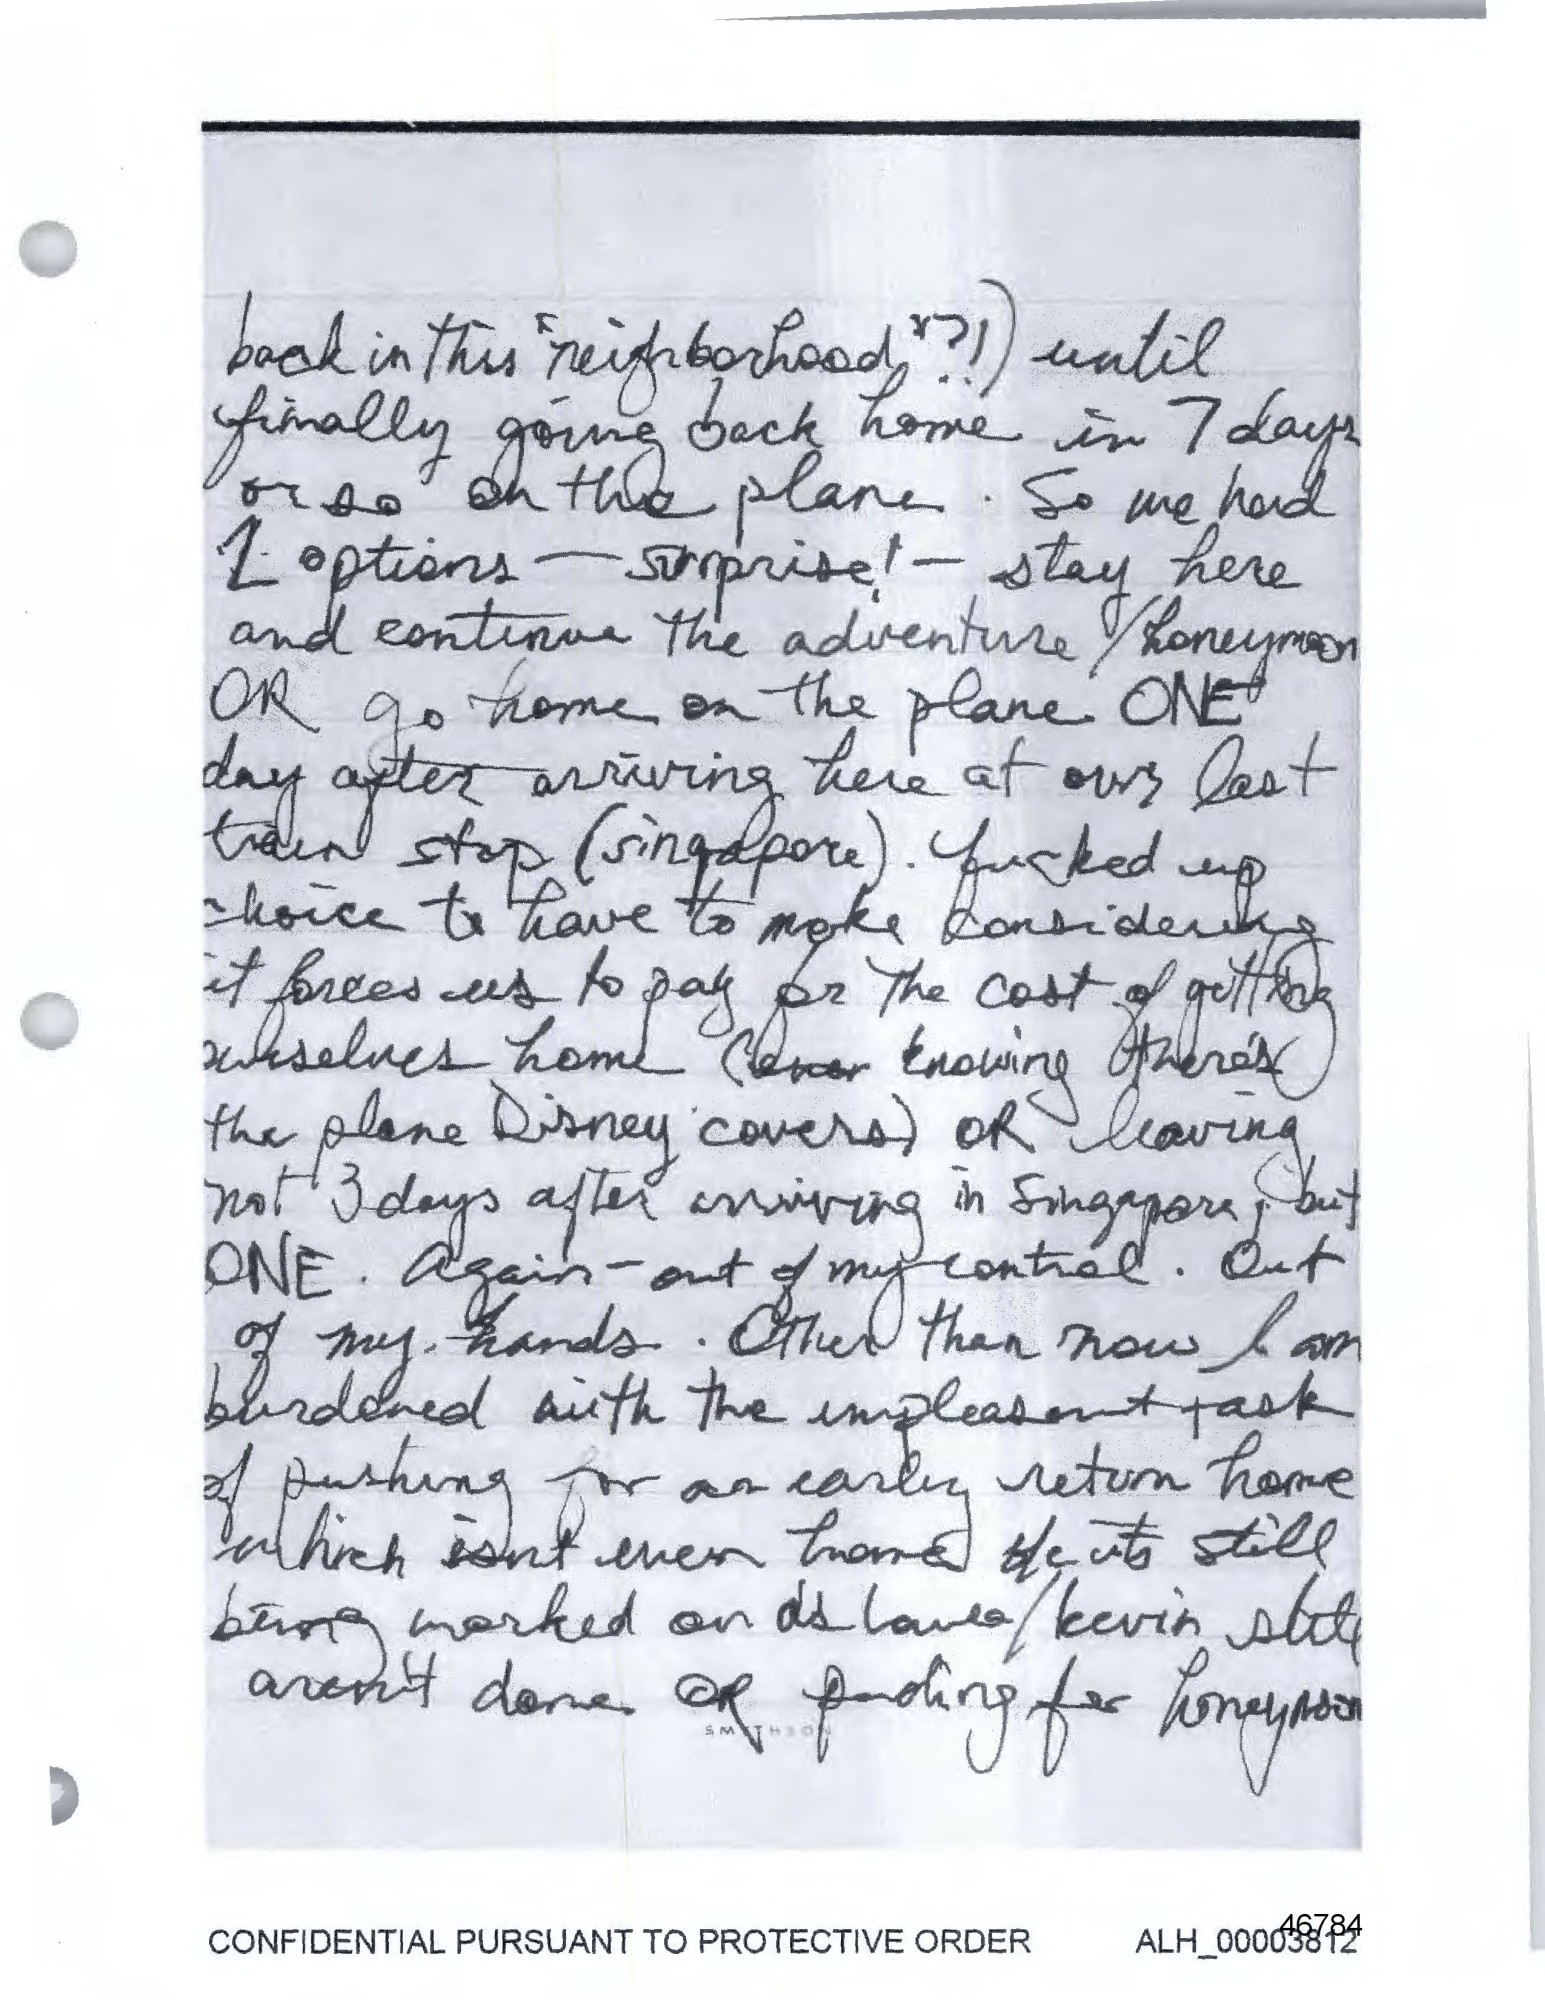 back in this "neighborhood"?!) until
finally going back home in 7 days
or so on the plane. So we had
2 options — surprise! — stay here
and continue the adventure/honeymoon
OR go home on the plane ONE
day after arriving here at our last
train stop (singapore). fucked up
choice to have to make considering
it forces us to pay for the cost of getting
ourselves home ( knowing there's
the plane Disney covers) OR leaving
not 3 days after arriving in Singapore, but
ONE. Again - out of my control. Out
of my hands. Other than now I am
burdened with the unpleasant task
of pushing for an early return home
which isn't even home b/c its still
being worked on d's /kevin
aren't done OR pushing for honeymoon
SMYTHSON
CONFIDENTIAL PURSUANT TO PROTECTIVE ORDER
46784
ALH_00003812